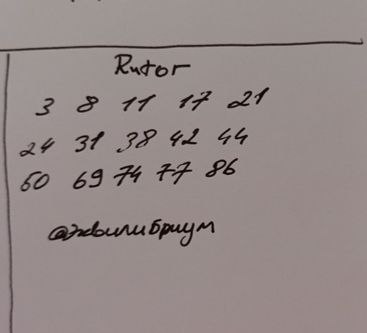 Rutor
3 8 11 17 21
24 31 38 42 44
60 69 74 77 86
@эквилибриум